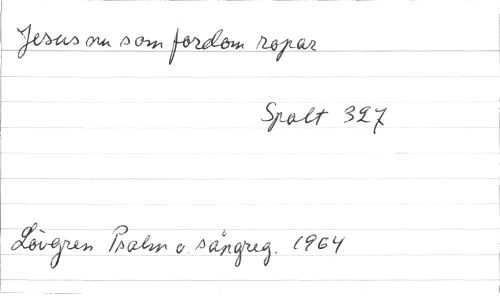 Jesus nu som fordom ropar
Spalt 327
Lövgren Psalm o. sångreg. 1964